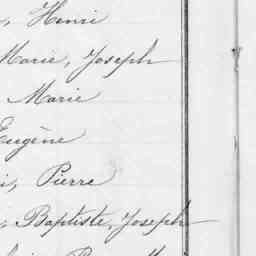 , Henri
Marie, Joseph
Marie
Eugène
, Pierre
, Baptiste, Joseph